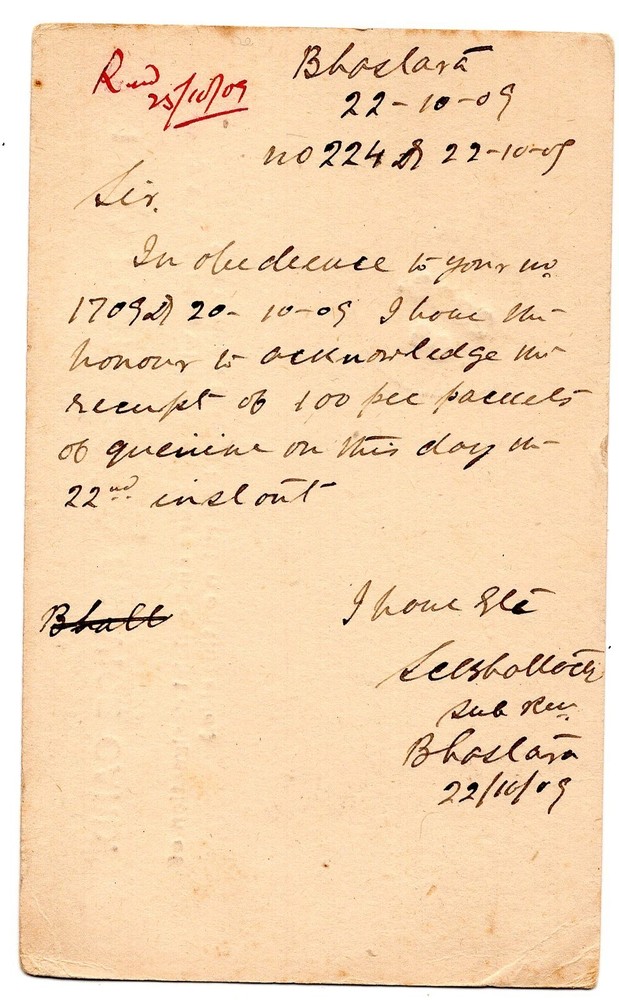 Recd
25/10/09
Bhastara
22-10-09
no 224 D/ 22-10-09
Sir,
In obedience to your no
1709 D/ 20-10-09 I have the
honour to acknowledge the
receipt of 100 pce packets
of quenine on this day the
22nd instant
I have Etc
Bhatt
Sub
Bhastara
22/10/09